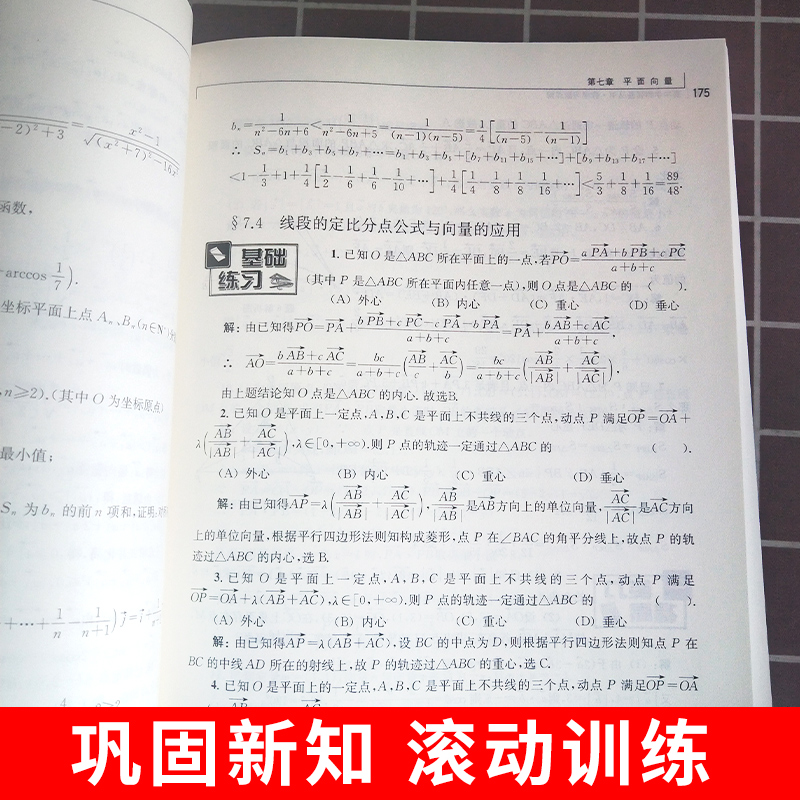 第七章 平面向量
175
b_n=\frac{1}{n^2-6n+6}<\frac{1}{n^2-6n+5}=\frac{1}{(n-1)(n-5)}=\frac{1}{4}\left[\frac{1}{(n-5)}-\frac{1}{(n-1)}\right]
∴ S_n=b_1+b_3+b_5+b_7+⋯=b_1+b_3+b_5+[b_7+b_{11}+b_{15}+⋯]+[b_9+b_{13}+b_{17}+⋯]
<1-\frac{1}{3}+1+\frac{1}{4}\left[\frac{1}{2}-\frac{1}{6}+\frac{1}{6}-\frac{1}{10}+⋯\right]+\frac{1}{4}\left[\frac{1}{4}-\frac{1}{8}+\frac{1}{8}-\frac{1}{16}+⋯\right]<\frac{5}{3}+\frac{1}{8}+\frac{1}{16}=\frac{89}{48}.
§7.4 线段的定比分点公式与向量的应用
基础
练习
1. 已知O是△ABC所在平面上的一点,若\overrightarrow{PO}=\frac{a\overrightarrow{PA}+b\overrightarrow{PB}+c\overrightarrow{PC}}{a+b+c}
(其中P是△ABC所在平面内任意一点),则O点是△ABC的 ( ).
(A) 外心 (B) 内心 (C) 重心 (D) 垂心
解:由已知得\overrightarrow{PO}=\overrightarrow{PA}+\frac{b\overrightarrow{PB}+c\overrightarrow{PC}-c\overrightarrow{PA}-b\overrightarrow{PA}}{a+b+c}=\overrightarrow{PA}+\frac{b\overrightarrow{AB}+c\overrightarrow{AC}}{a+b+c},
∴ \overrightarrow{AO}=\frac{b\overrightarrow{AB}+c\overrightarrow{AC}}{a+b+c}=\frac{bc}{a+b+c}\left(\frac{\overrightarrow{AB}}{c}+\frac{\overrightarrow{AC}}{b}\right)=\frac{bc}{a+b+c}\left(\frac{\overrightarrow{AB}}{|\overrightarrow{AB}|}+\frac{\overrightarrow{AC}}{|\overrightarrow{AC}|}\right).
由上题结论知O点是△ABC的内心.故选B.
2. 已知O是平面上一定点,A,B,C是平面上不共线的三个点,动点P满足\overrightarrow{OP}=\overrightarrow{OA}+
λ\left(\frac{\overrightarrow{AB}}{|\overrightarrow{AB}|}+\frac{\overrightarrow{AC}}{|\overrightarrow{AC}|}\right),λ∈[0,+∞).则P点的轨迹一定通过△ABC的 ( ).
(A) 外心 (B) 内心 (C) 重心 (D) 垂心
解:由已知得\overrightarrow{AP}=λ\left(\frac{\overrightarrow{AB}}{|\overrightarrow{AB}|}+\frac{\overrightarrow{AC}}{|\overrightarrow{AC}|}\right),\frac{\overrightarrow{AB}}{|\overrightarrow{AB}|}是\overrightarrow{AB}方向上的单位向量,\frac{\overrightarrow{AC}}{|\overrightarrow{AC}|}是\overrightarrow{AC}方向
上的单位向量,根据平行四边形法则知构成菱形,点P在∠BAC的角平分线上,故点P的轨
迹过△ABC的内心,选B.
3. 已知O是平面上一定点,A,B,C是平面上不共线的三个点,动点P满足
\overrightarrow{OP}=\overrightarrow{OA}+λ(\overrightarrow{AB}+\overrightarrow{AC}),λ∈[0,+∞).则P点的轨迹一定通过△ABC的 ( ).
(A) 外心 (B) 内心 (C) 重心 (D) 垂心
解:由已知得\overrightarrow{AP}=λ(\overrightarrow{AB}+\overrightarrow{AC}),设BC的中点为D,则根据平行四边形法则知点P在
BC的中线AD所在的射线上,故P的轨迹过△ABC的重心,选C.
4. 已知O是平面上的一定点,A,B,C是平面上不共线的三个点,动点P满足\overrightarrow{OP}=\overrightarrow{OA}
函数,
-arccos\frac{1}{7}).
坐标平面上点A_n、B_n(n∈N
,n≥2).(其中O为坐标原点)
最小值;
S_n为b_n的前n项和,证明:
+⋯+\frac{1}{n}-\frac{1}{n+1})
巩固新知 滚动训练